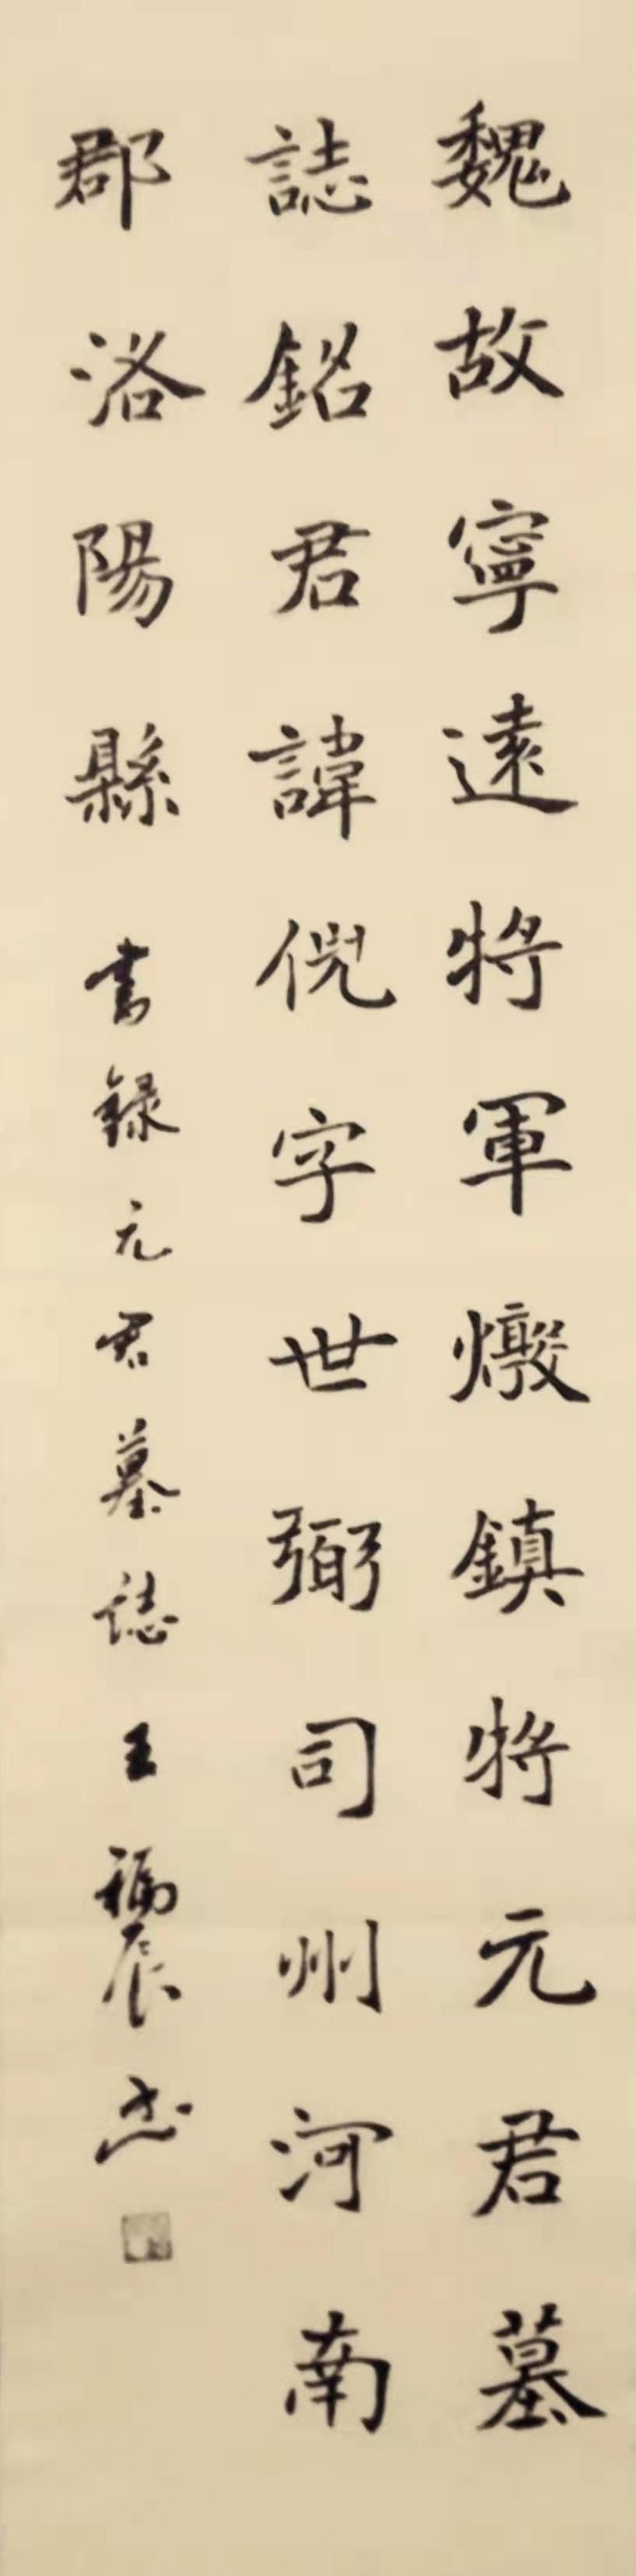 魏故寧遠將軍燉鎮將元君墓
誌銘君諱倪字世弼司州河南
郡洛陽縣
書錄元君墓誌 王 書